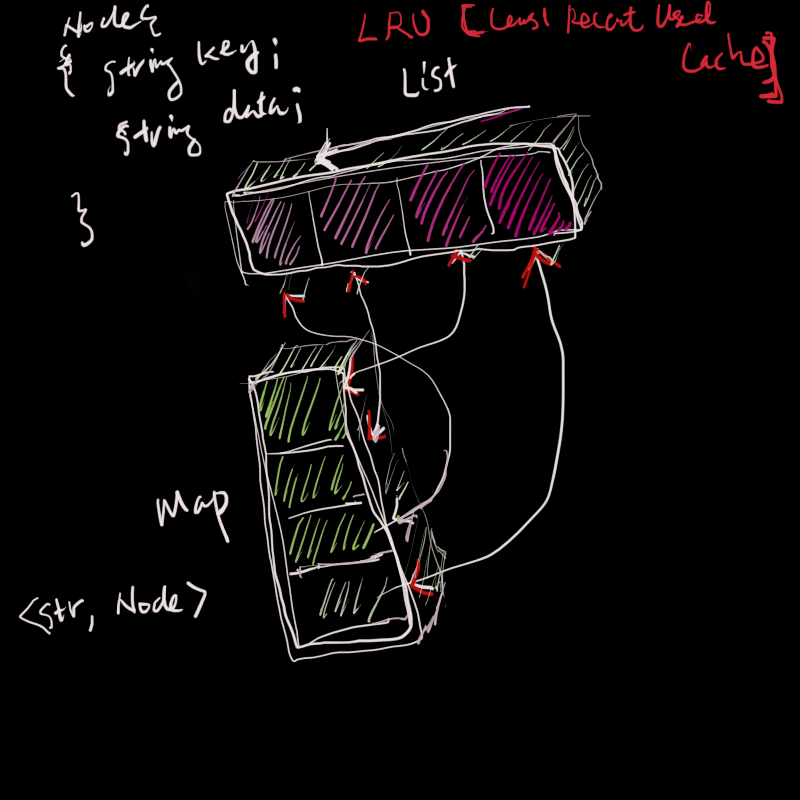 Node{
{ string key;
string data;
}
LRU [Least Recent Used
Cache]
List
Map
<str, Node>